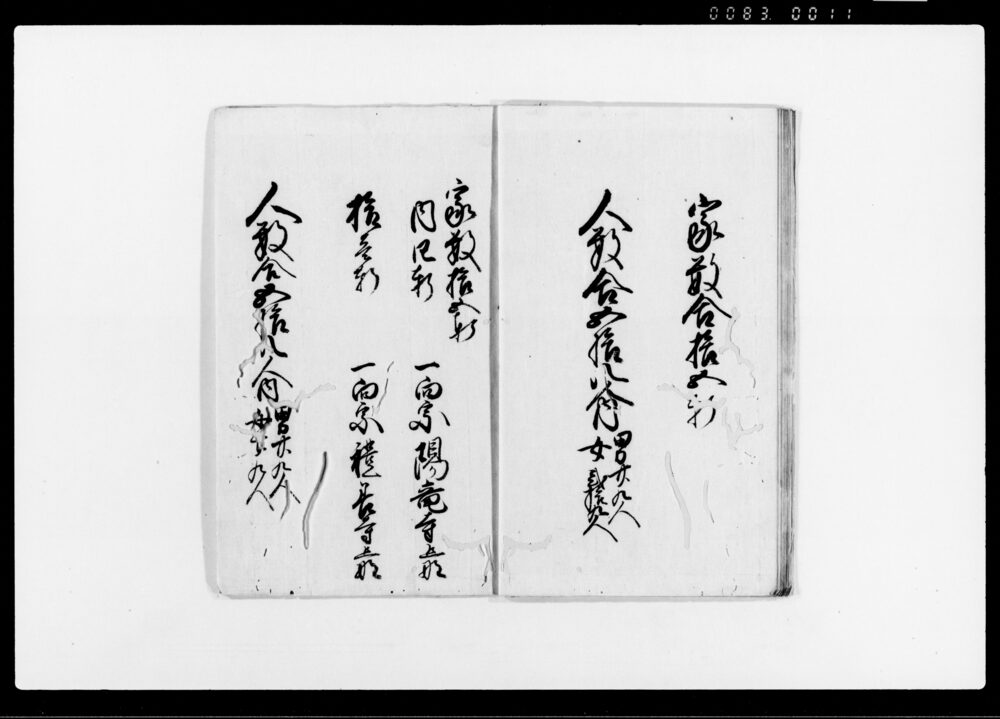 0083. 0011
家数合拾五軒
人数合五拾八人内
男廿九人
女 九人
家数拾五軒
内四軒 一向宗陽竜寺旦那
拾壱軒 一向宗 善寺旦那
人数合五拾八人内
男廿九人
女廿九人